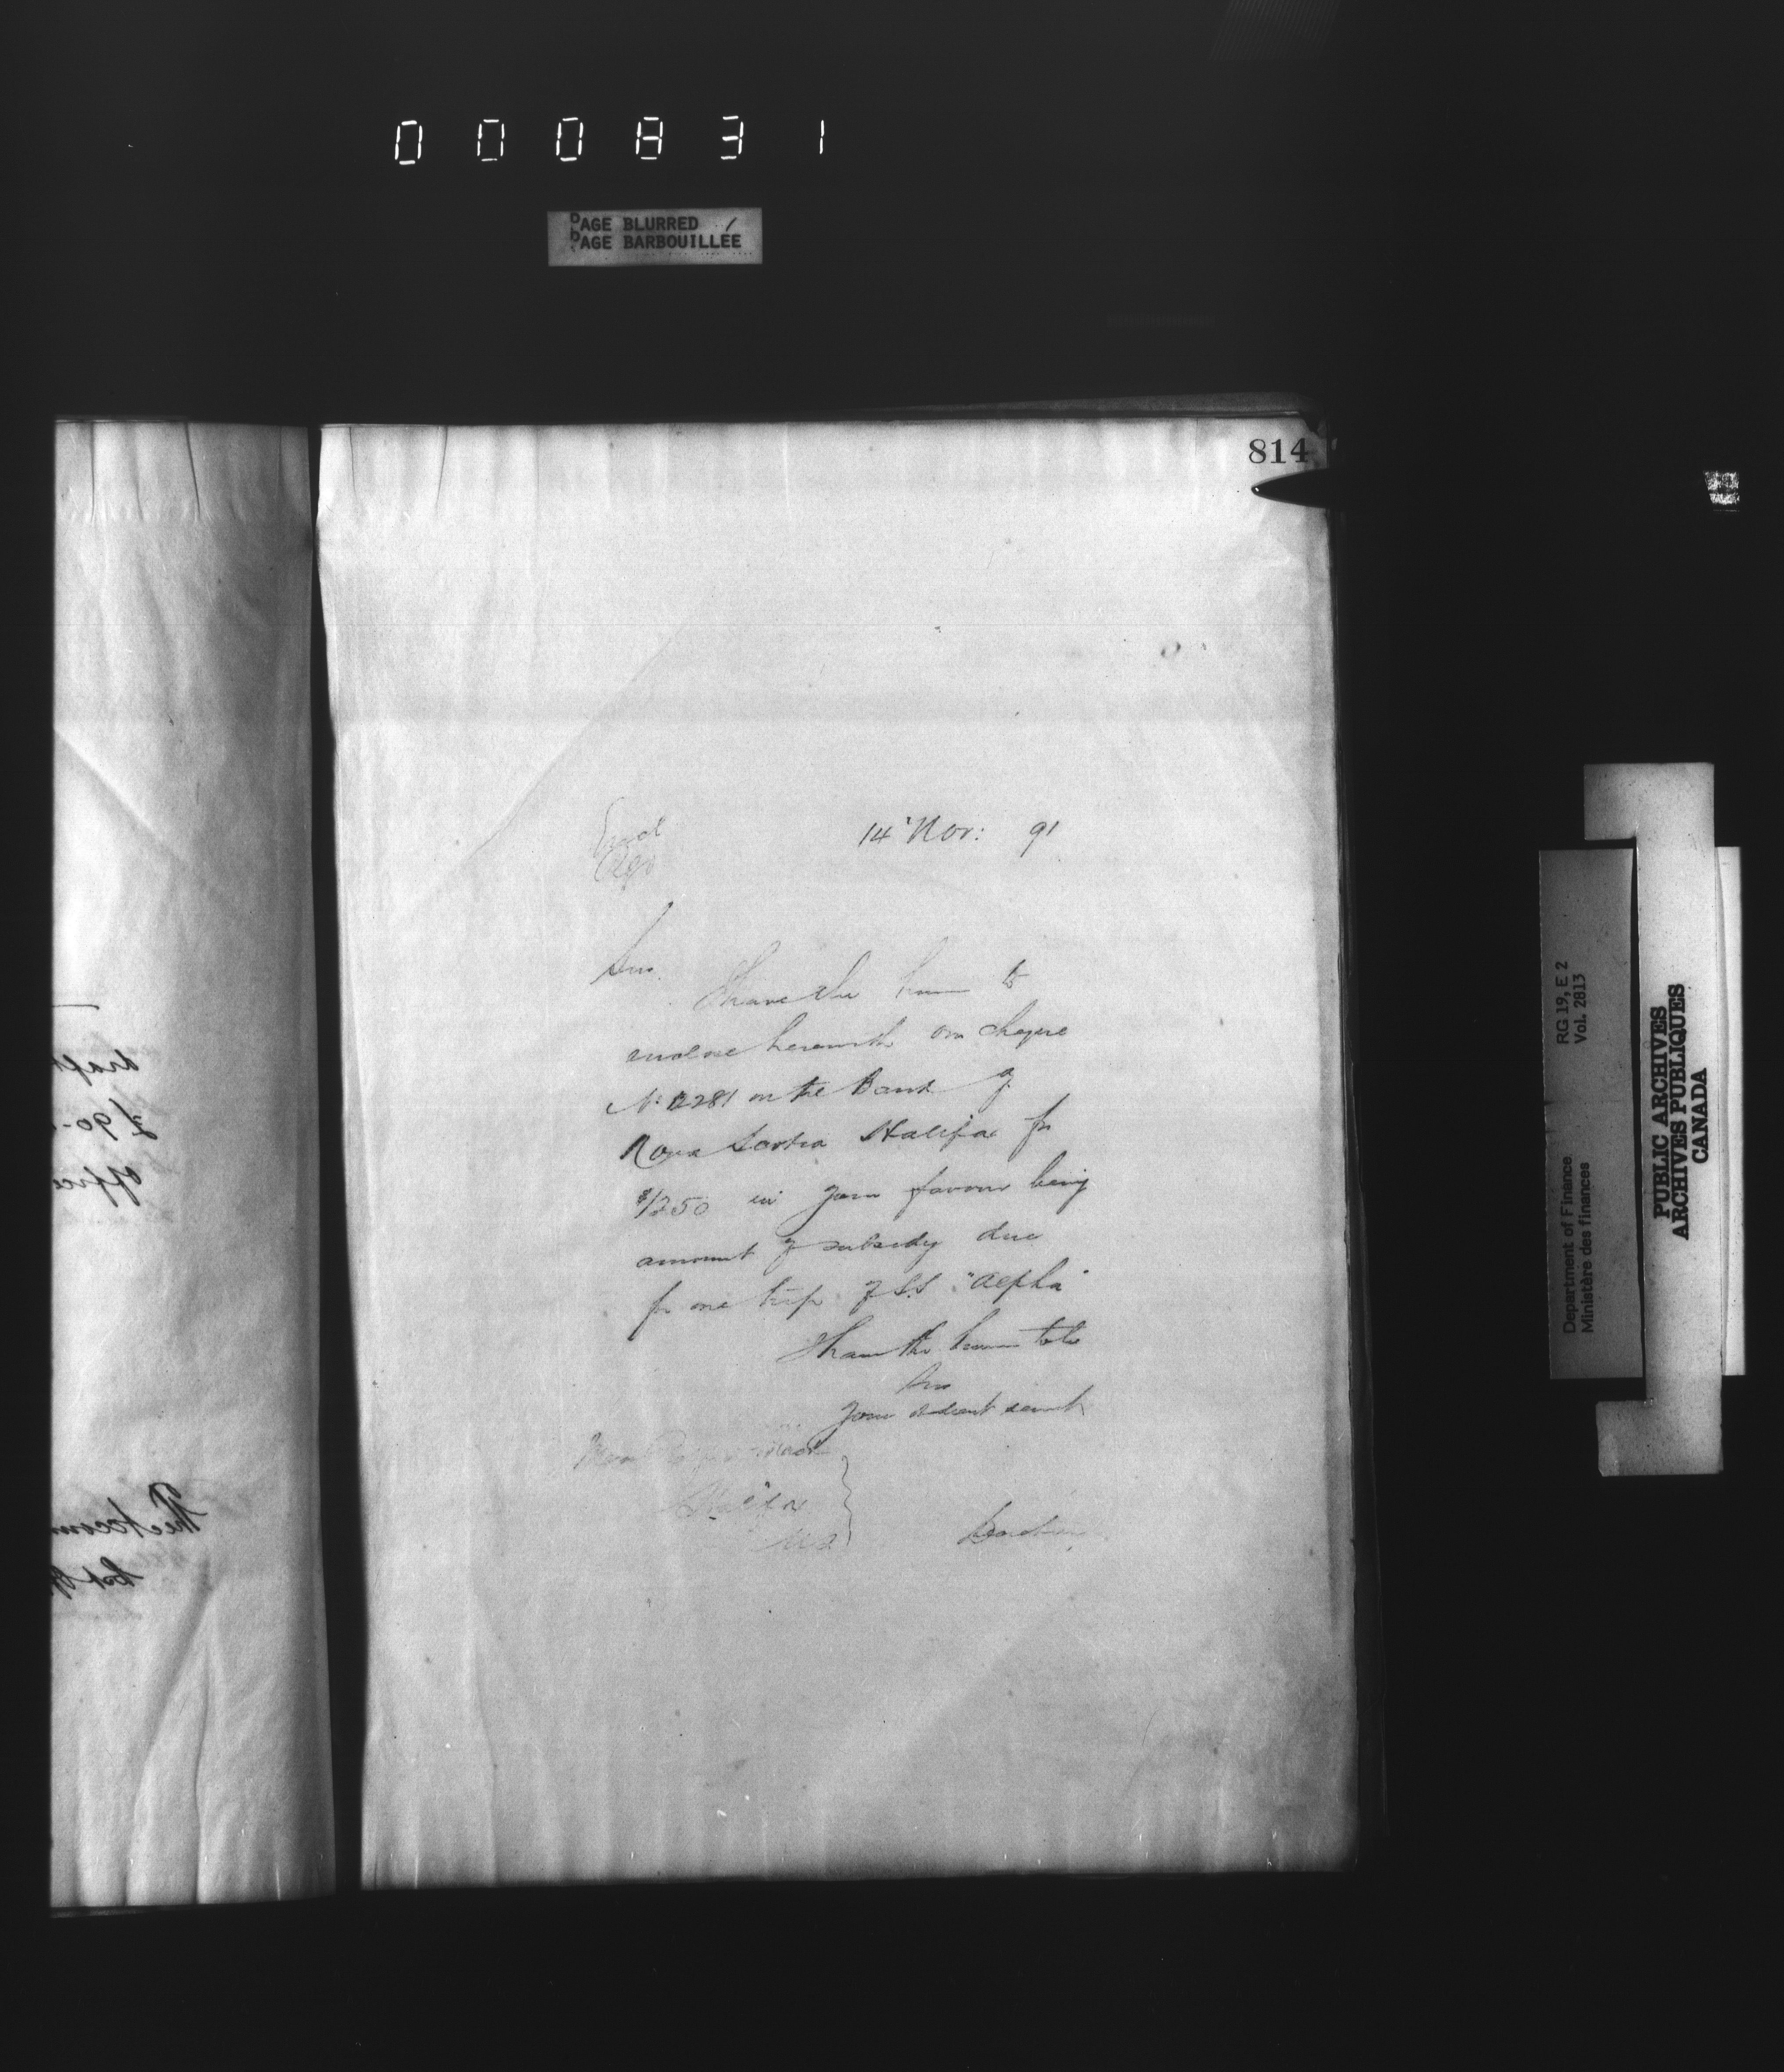 000831
PAGE BLURRED
PAGE BARBOUILLÉE
814
Encl
14" Nov: 91
Sir.
I have the honor to
enclose herewith om cheque
No 12281 on the Bank of
Nova Scotia Halifax for
$1250 in your favour being
amount of subsidy due
for one trip of S.S. "Alpha"
I have the honor to be
Sir
Your obedient servant
Halifax
N.S.
draft
£90-
Office
The Accoun
RG 19, E 2
Vol. 2813
Department of Finance
Ministère des finances
PUBLIC ARCHIVES
ARCHIVES PUBLIQUES
CANADA